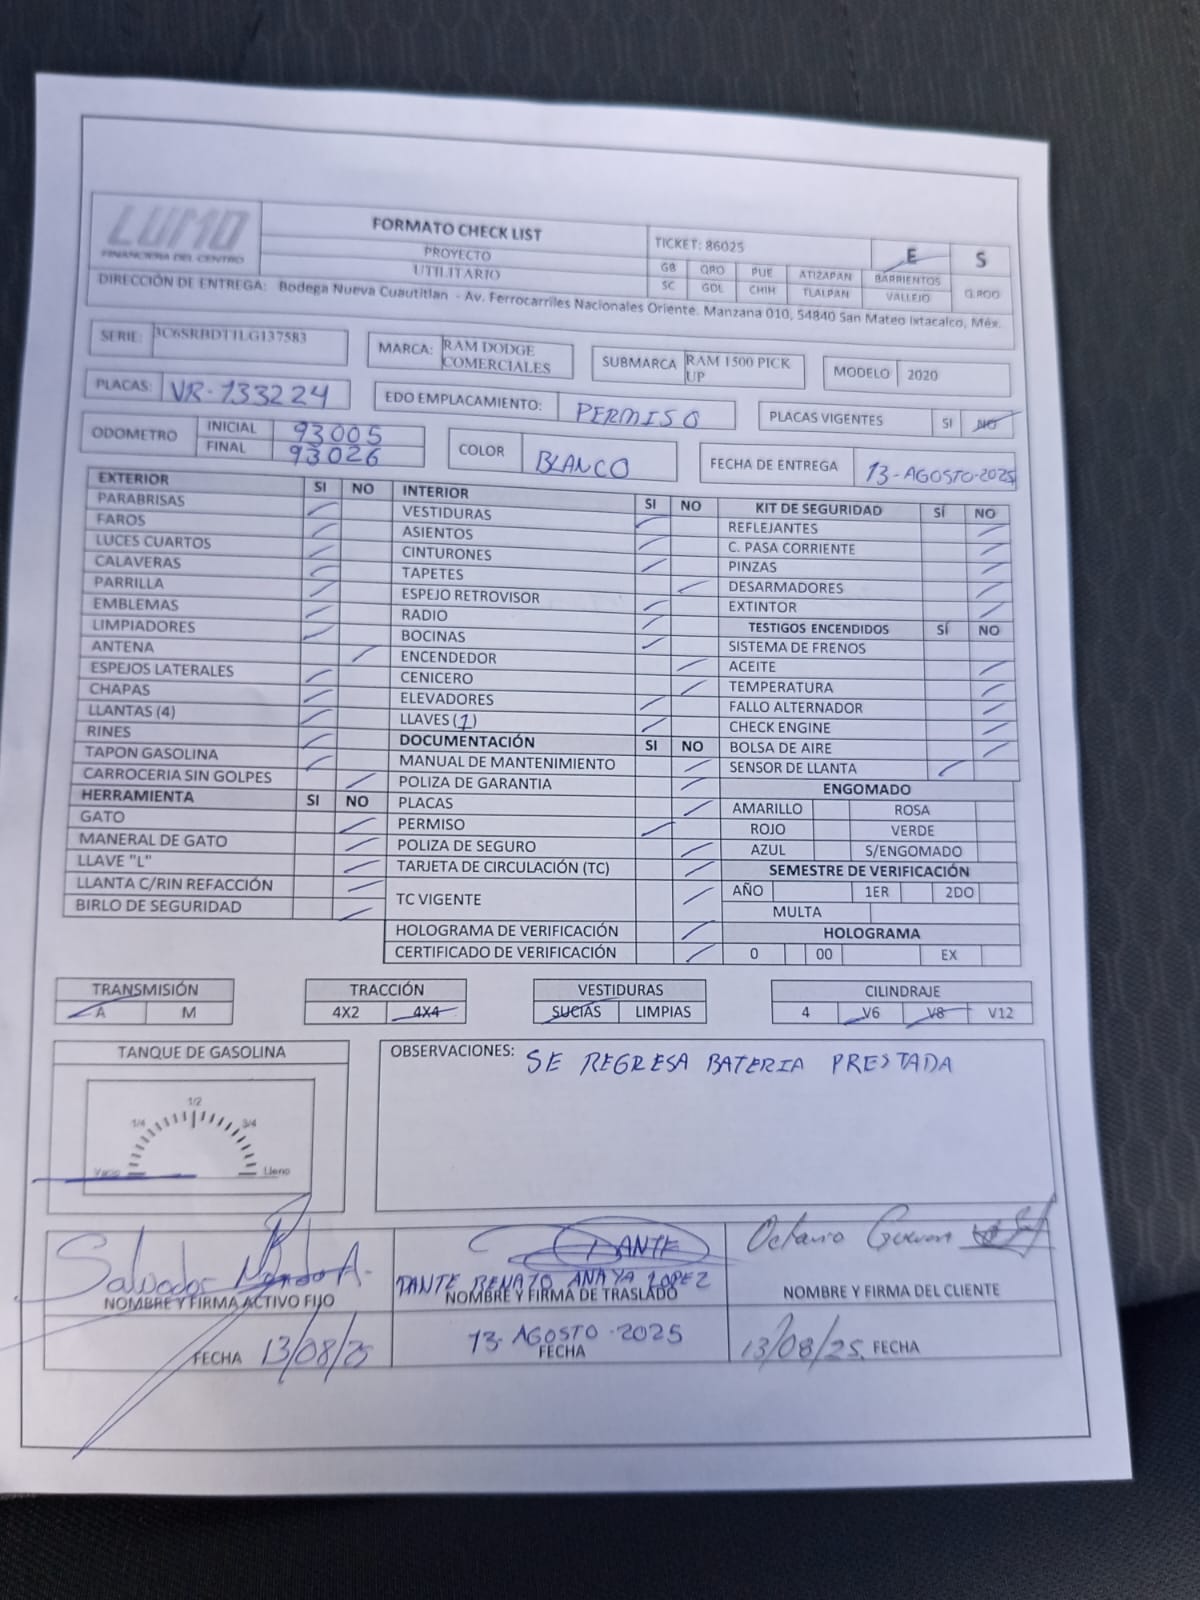 LUMO
FINANCIERA DEL CENTRO
FORMATO CHECK LIST
PROYECTO
UTILITARIO
TICKET: 86025 E S
GB QRO PUE ATIZAPAN BARRIENTOS
SC GDL CHIH TLALPAN VALLEJO Q.ROO
DIRECCIÓN DE ENTREGA: Bodega Nueva Cuautitlan - Av. Ferrocarriles Nacionales Oriente. Manzana 010, 54840 San Mateo Ixtacalco, Méx.
SERIE: 3C6SRBDT1LG137583
MARCA: RAM DODGE COMERCIALES
SUBMARCA RAM 1500 PICK UP
MODELO 2020
PLACAS: VR-133224
EDO EMPLACAMIENTO: PERMISO
PLACAS VIGENTES SI NO
ODOMETRO INICIAL 93005
FINAL 93026
COLOR BLANCO
FECHA DE ENTREGA 13-AGOSTO-2025
EXTERIOR SI NO
PARABRISAS
FAROS
LUCES CUARTOS
CALAVERAS
PARRILLA
EMBLEMAS
LIMPIADORES
ANTENA
ESPEJOS LATERALES
CHAPAS
LLANTAS (4)
RINES
TAPON GASOLINA
CARROCERIA SIN GOLPES
HERRAMIENTA SI NO
GATO
MANERAL DE GATO
LLAVE "L"
LLANTA C/RIN REFACCIÓN
BIRLO DE SEGURIDAD
INTERIOR SI NO
VESTIDURAS
ASIENTOS
CINTURONES
TAPETES
ESPEJO RETROVISOR
RADIO
BOCINAS
ENCENDEDOR
CENICERO
ELEVADORES
LLAVES (1)
DOCUMENTACIÓN SI NO
MANUAL DE MANTENIMIENTO
POLIZA DE GARANTIA
PLACAS
PERMISO
POLIZA DE SEGURO
TARJETA DE CIRCULACIÓN (TC)
TC VIGENTE
HOLOGRAMA DE VERIFICACIÓN
CERTIFICADO DE VERIFICACIÓN
KIT DE SEGURIDAD SÍ NO
REFLEJANTES
C. PASA CORRIENTE
PINZAS
DESARMADORES
EXTINTOR
TESTIGOS ENCENDIDOS SÍ NO
SISTEMA DE FRENOS
ACEITE
TEMPERATURA
FALLO ALTERNADOR
CHECK ENGINE
BOLSA DE AIRE
SENSOR DE LLANTA
ENGOMADO
AMARILLO ROSA
ROJO VERDE
AZUL S/ENGOMADO
SEMESTRE DE VERIFICACIÓN
AÑO 1ER 2DO
MULTA
HOLOGRAMA
0 00 EX
TRANSMISIÓN
A M
TRACCIÓN
4X2 4X4
VESTIDURAS
SUCIAS LIMPIAS
CILINDRAJE
4 V6 V8 V12
TANQUE DE GASOLINA
1/2
1/4 3/4
Vacio Lleno
OBSERVACIONES: SE REGRESA BATERIA PRESTADA
Salvador A.
NOMBRE Y FIRMA ACTIVO FIJO
FECHA 13/08/25
DANTE
DANTE RENATO ANAYA LOPEZ
NOMBRE Y FIRMA DE TRASLADO
13-AGOSTO-2025
FECHA
Octavio
NOMBRE Y FIRMA DEL CLIENTE
13/08/25. FECHA